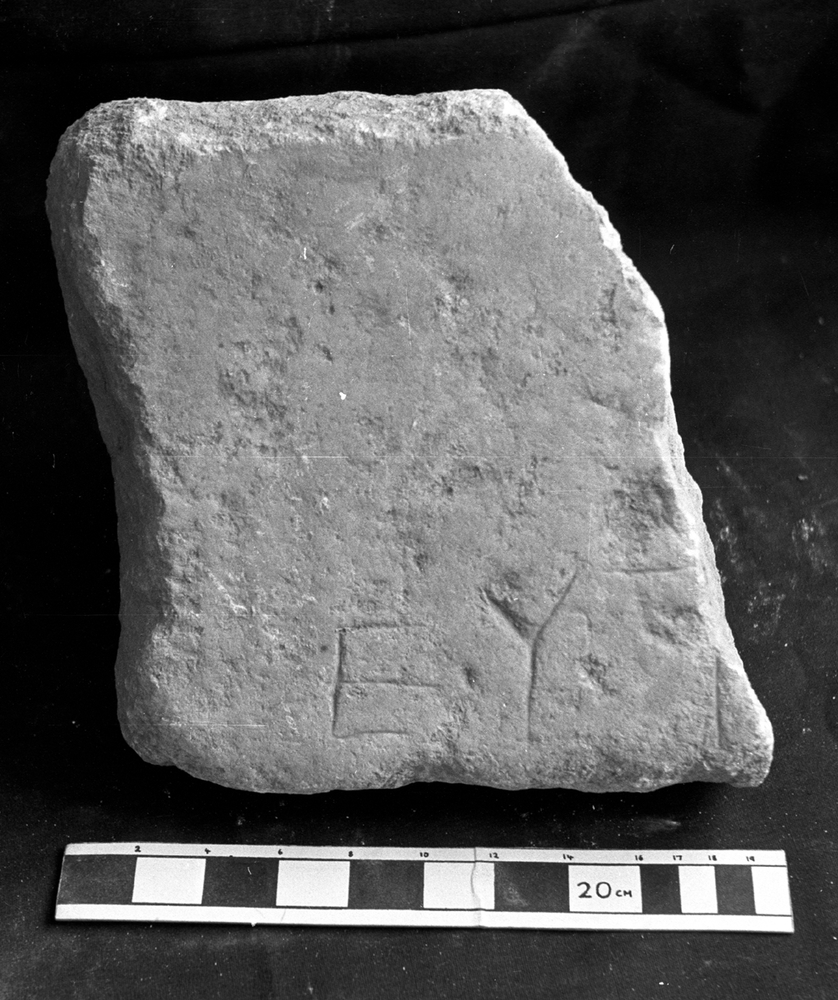 ΕΥ
2 4 6 8 10 12 14 16 17 18 19
20 CM